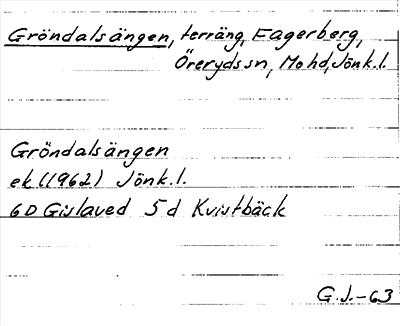 Gröndalsängen, terräng, Fagerberg,
Öreryds sn, Mo hd, Jönk. l.
Gröndalsängen
ek (1962) Jönk. l.
6D Gislaved 5 d Kvistbäck
G. J. -63